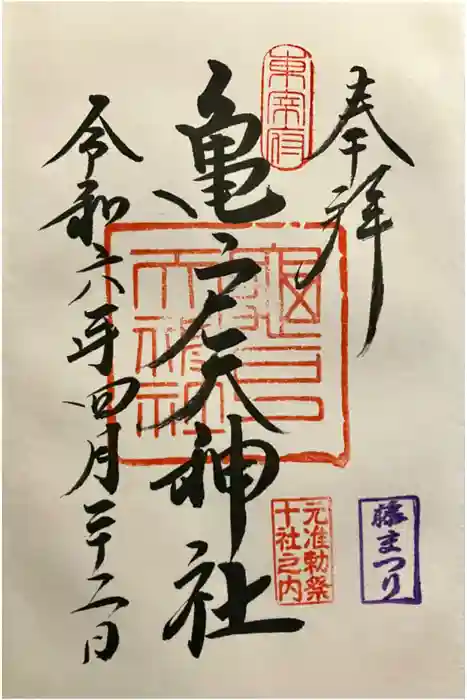 奉拝
東宰府
亀戸天神社
亀戸天神社
元准勅祭
十社之内
藤まつり
令和六年四月二十二日